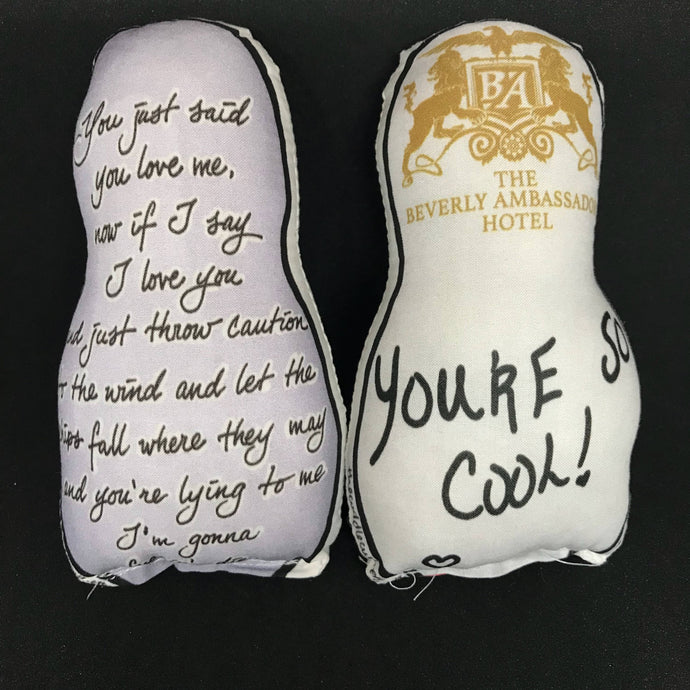 You just said
you love me,
now if I say
I love you
just throw caution
the wind and let the
fall where they may
and you're lying to me
I'm gonna
B A
THE
BEVERLY AMBASSADO
HOTEL
YOU'RE SO
COOL!